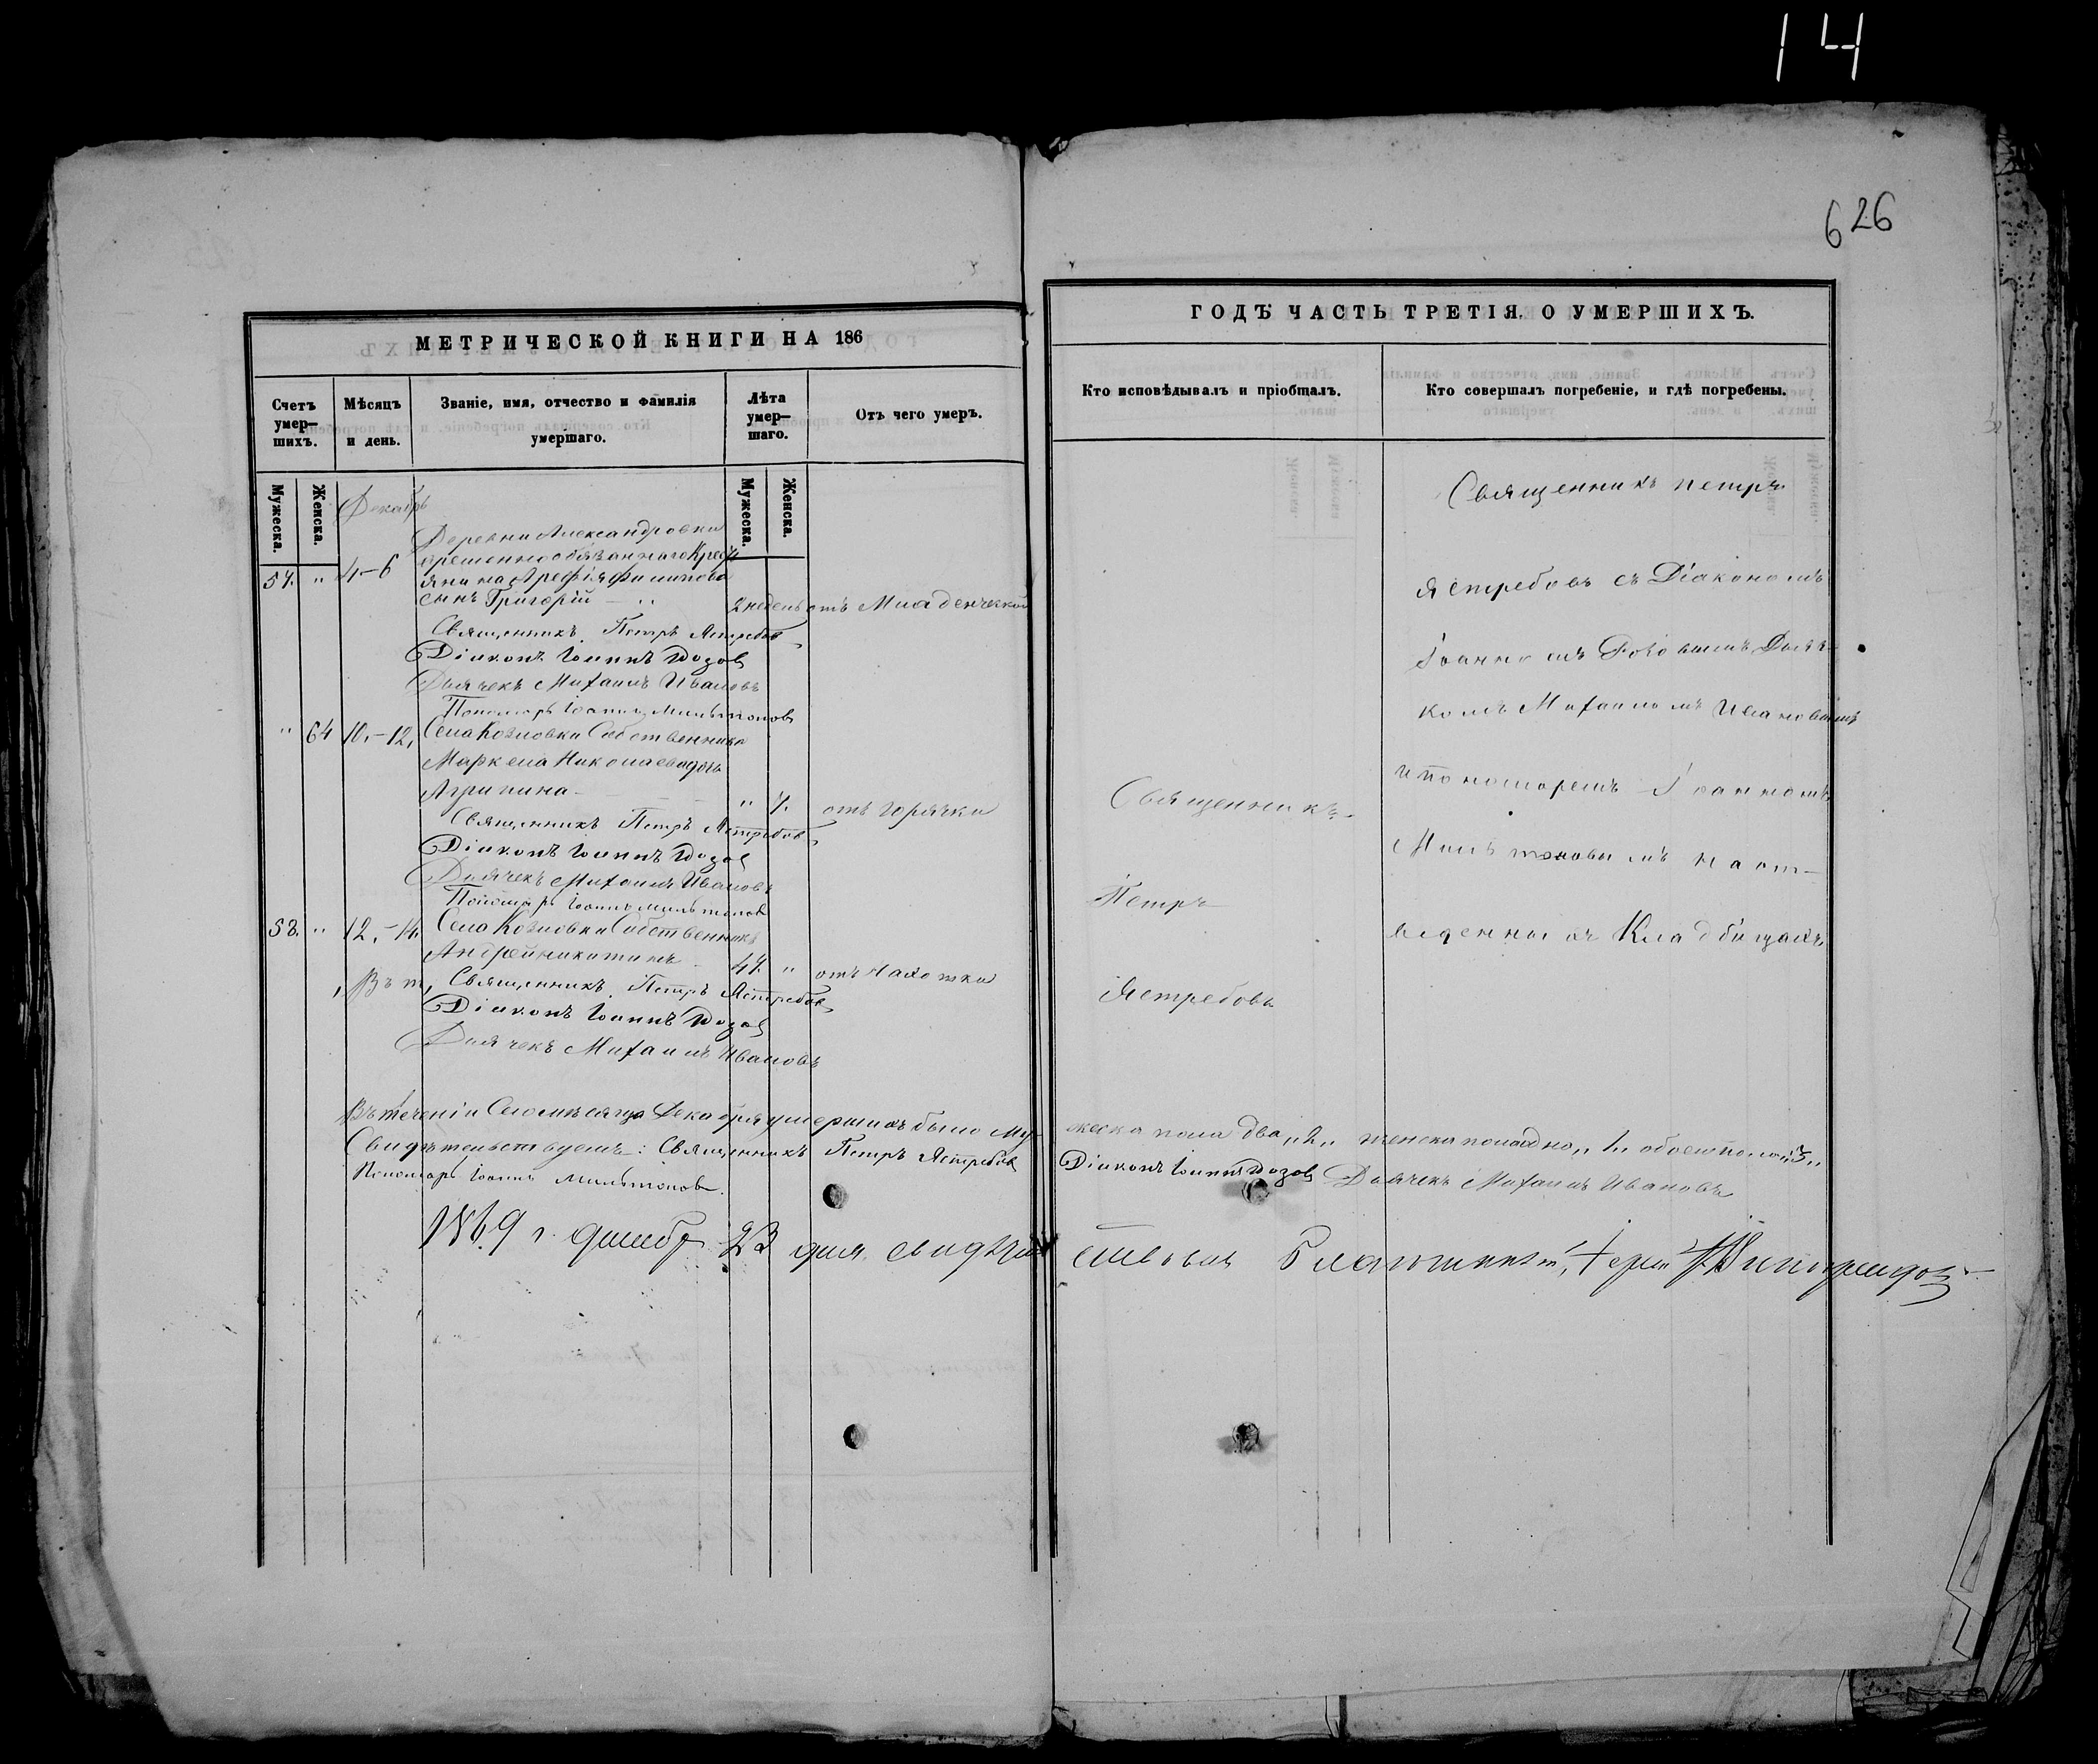 14
626
МЕТРИЧЕСКОЙ КНИГИ НА 186
Счетъ умер—шихъ.
Мѣсяцъ и день.
Званіе, имя, отчество и фамилія умершаго.
Лѣта умер—шаго.
Отъ чего умеръ.
Мужеска.
Женска.
Мужеска.
Женска.
Декабрь
Деревни Александровки
временнообязаннаго Кресть
57. " 4.–6 янина Арефія Филипова
сынъ Григорій — " 2 недель отъ Младенческой
Священникъ Петръ Ястребовъ
Діаконъ Іоаннъ Розов
Дьячекъ Михаилъ Ивановъ
Пономарь Іоаннъ Мильтоновъ
" 64 10.–12. Села Козловки Собственника
Маркела Николаева дочь
Агрипина — " 7. отъ горячки
Священникъ Петръ Ястребовъ
Діаконъ Іоаннъ Розов
Дьячекъ Михаилъ Ивановъ
Пономарь Іоаннъ Мильтонов
58. " 12.–14. Села Козловки Собственникъ
Андрей Никитинъ — 47. " отъ Чахотки
Священникъ Петръ Ястребов
Діаконъ Іоаннъ Розов
Дьячекъ Михаилъ Ивановъ
Въ теченіи Сего мѣсяца Декабря умершихъ было му-
Свидѣтельствуемъ: Священникъ Петръ Ястребов
Пономарь Іоаннъ Мильтонов.
1869 г. 23 дня свидѣтель
ГОДЪ ЧАСТЬ ТРЕТІЯ. О УМЕРШИХЪ.
Кто исповѣдывалъ и пріобщалъ.
Кто совершалъ погребеніе, и гдѣ погребены.
Священникъ Петръ
Ястребовъ съ Діакономъ
Іоанномъ Розовымъ Дьяч-
комъ Михаиломъ Ивановымъ
и пономаремъ Іоанномъ
Мильтоновымъ на от-
веденныхъ Кладбищахъ
Священникъ
Петръ
Ястребовъ
жеска пола два „2„ женска пола одно „1„ обоего пола „3„
Діаконъ Іоаннъ Розов Дьячекъ Михаилъ Ивановъ
ствовалъ Благочинный, Іерей Виноградов